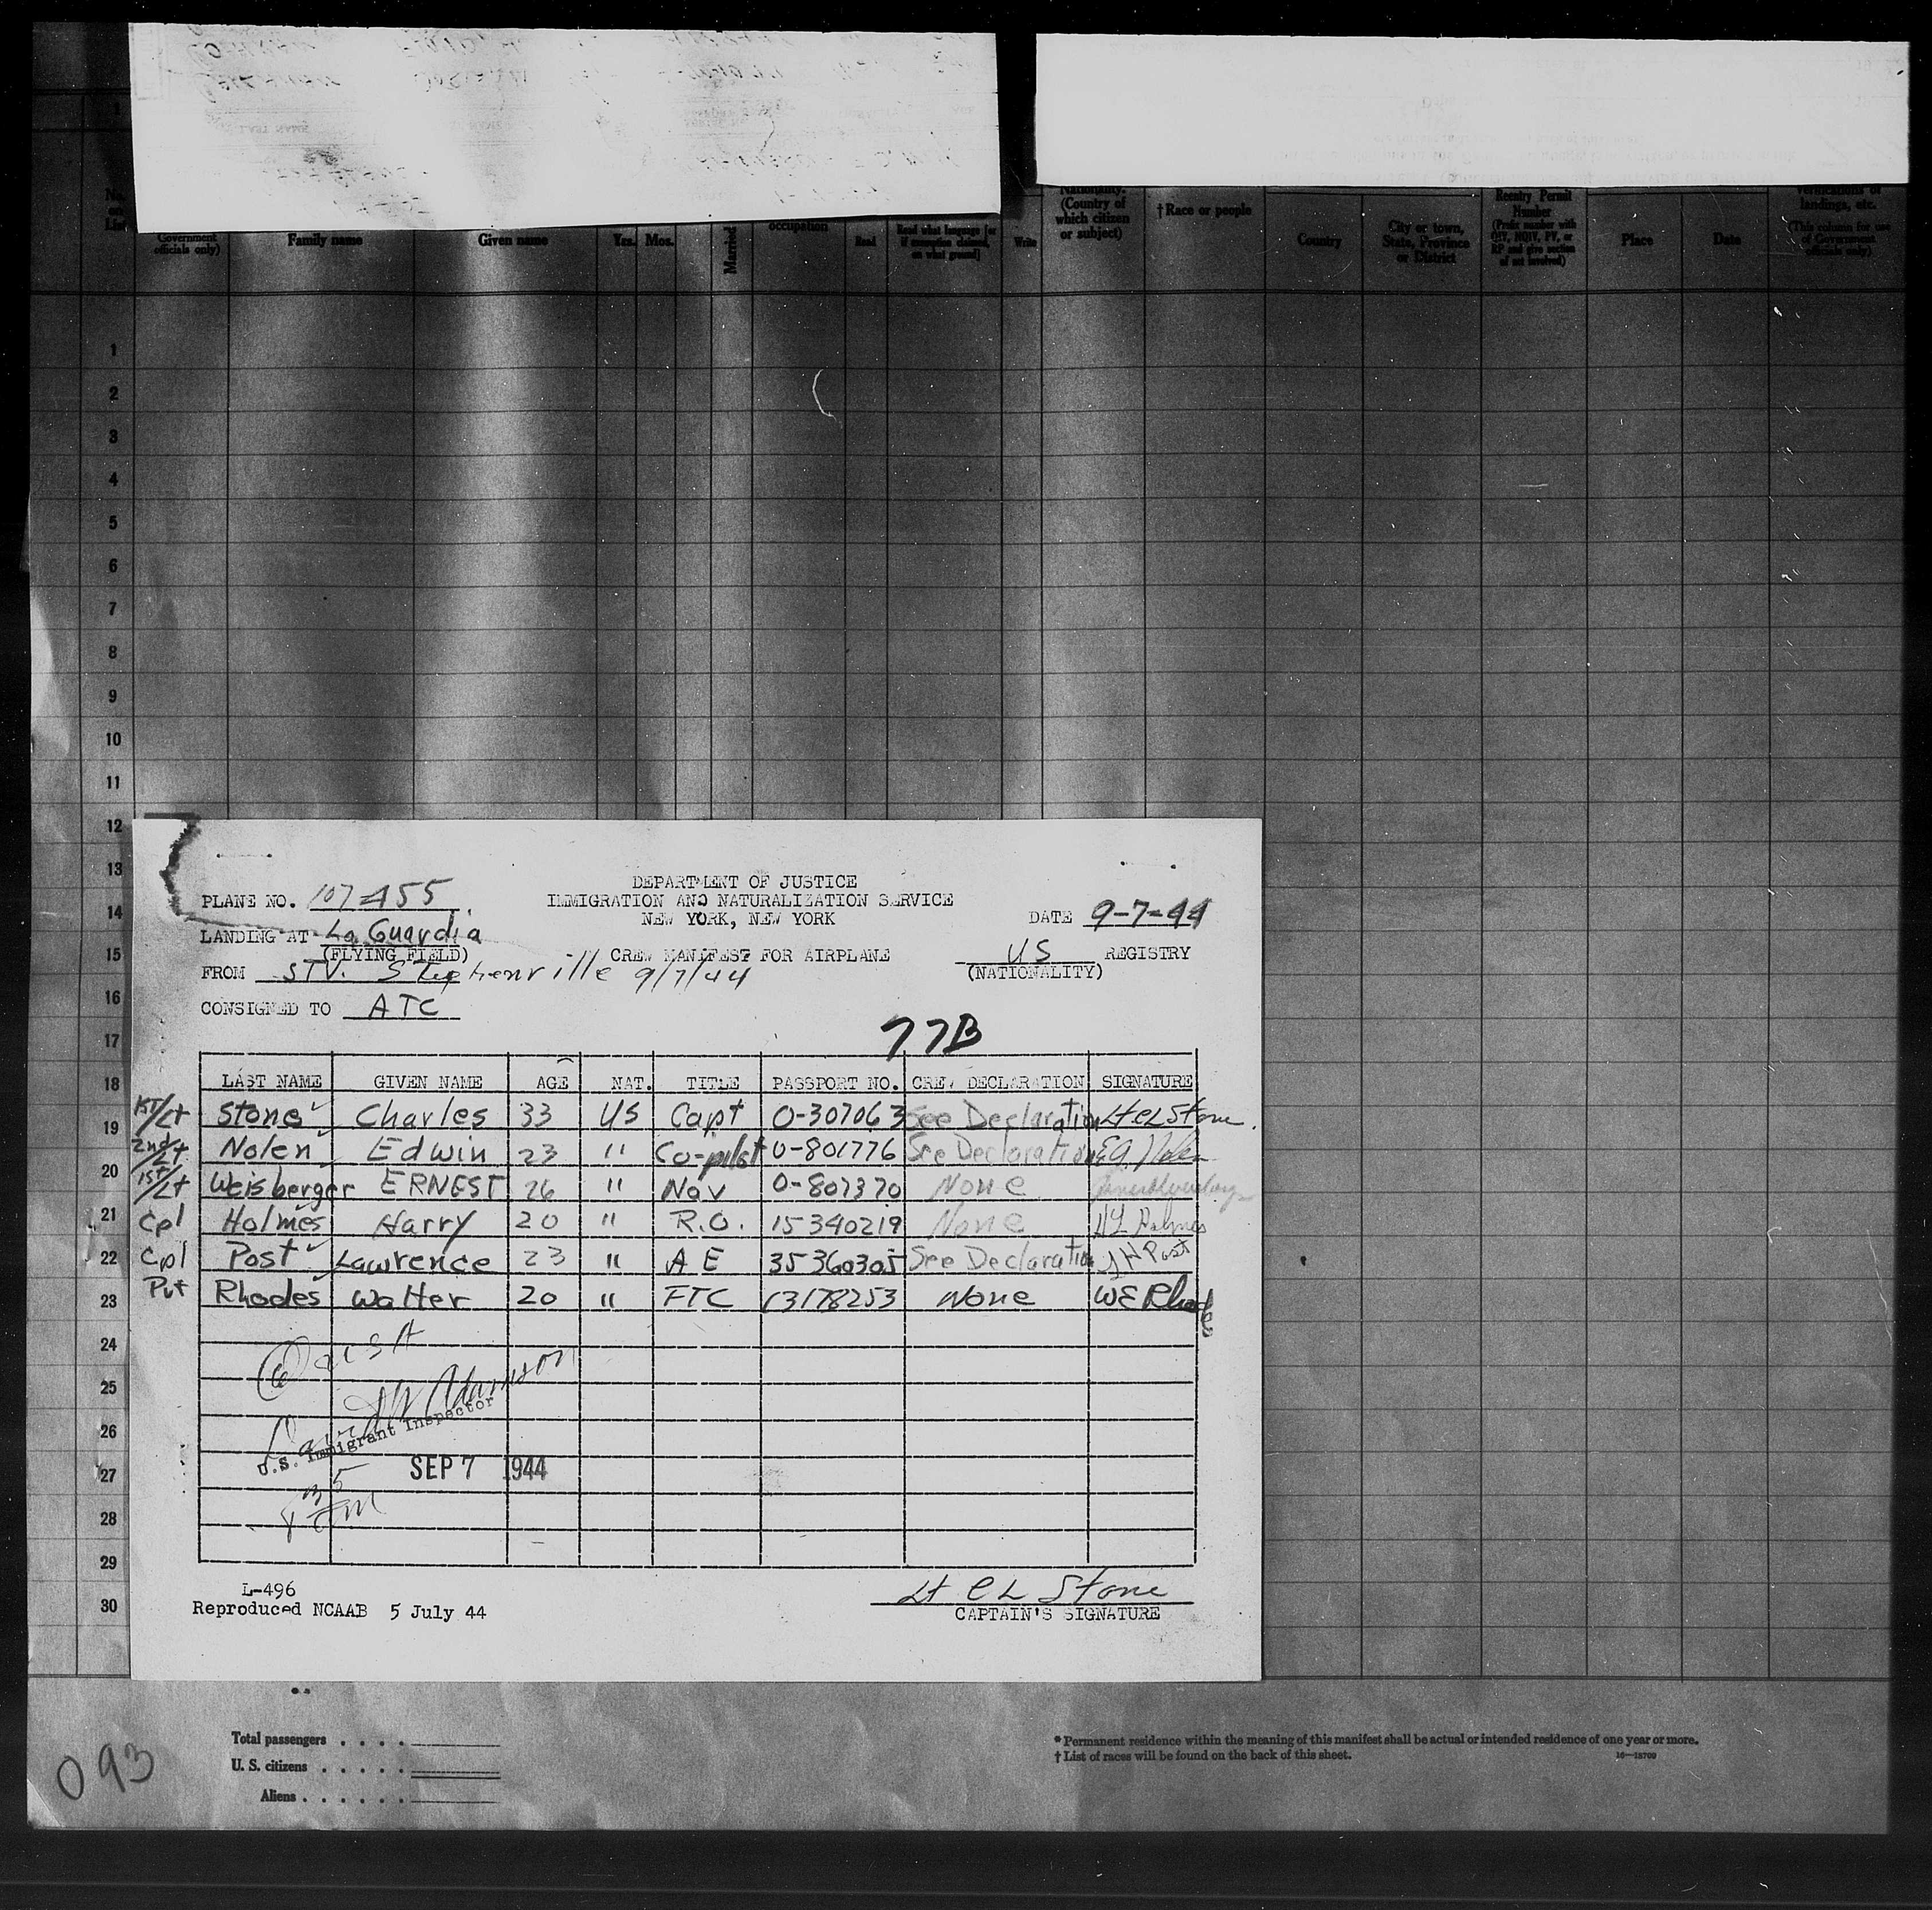 No. on List
Government officials only)
Family name
Given name
Yrs. Mos.
Married
occupation
Read
Read what language [or if exemption claimed, on what ground]
Write
Nationality. (Country of which citizen or subject)
†Race or people
Country
City or town, State, Province or District
Reentry Permit Number (Prefix number with QIV, NQIV, PV, or RP and give section of act involved)
Place
Date
Verifications of landings, etc.
(This column for use of Government officials only)
1
2
3
4
5
6
7
8
9
10
11
12
13
14
15
16
17
18
19
20
21
22
23
24
25
26
27
28
29
30
DEPARTMENT OF JUSTICE
IMMIGRATION AND NATURALIZATION SERVICE
NEW YORK, NEW YORK
PLANE NO. 107455
DATE 9-7-44
LANDING AT La Guardia
(FLYING FIELD)
CREW MANIFEST FOR AIRPLANE
US REGISTRY
(NATIONALITY)
FROM STV. Stephenville 9/7/44
CONSIGNED TO ATC
77B
LAST NAME GIVEN NAME AGE NAT. TITLE PASSPORT NO. CREW DECLARATION SIGNATURE
1st/Lt Stone Charles 33 US Capt O-307063 See Declaration Lt CL Stone
2nd/Lt Nolen Edwin 23 " Co-pilot O-801776 See Declaration E.G. Nolen
1st/Lt Weisberger ERNEST 26 " Nav O-807370 None
Cpl Holmes Harry 20 " R.O. 15340219 None HL Holmes
Cpl Post Lawrence 23 " A E 35360305 See Declaration LH Post
Pvt Rhodes Walter 20 " FTC 13178253 None WE Rhodes
(6) USA
Adamson
U.S. Immigrant Inspector
SEP 7 1944
8 35 PM
L-496
Reproduced NCAAB 5 July 44
Lt CL Stone
CAPTAIN'S SIGNATURE
Total passengers . . . .
U. S. citizens . . . . .
Aliens . . . . . .
* Permanent residence within the meaning of this manifest shall be actual or intended residence of one year or more.
† List of races will be found on the back of this sheet.
16—18709
093